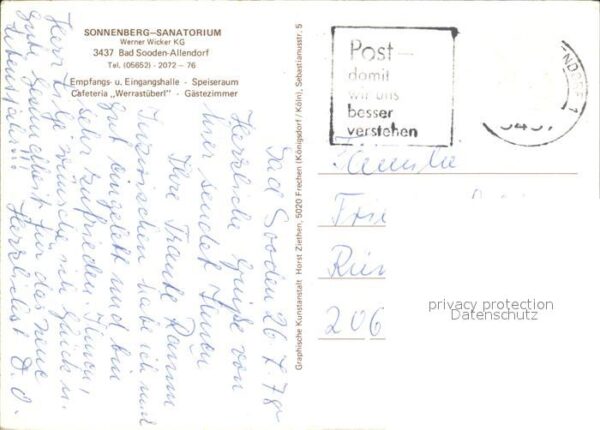 SONNENBERG–SANATORIUM
Werner Wicker KG
3437 Bad Sooden-Allendorf
Tel. (05652) - 2072 – 76
Empfangs- u. Eingangshalle - Speiseraum
Cafeteria „Werrastüberl" - Gästezimmer
Bad Sooden 26.7.78
Herzliche Grüße von
hier sendet Ihnen
Ihre Traute
Inzwischen habe ich mich
gut eingelebt und bin
sehr zufrieden. Ihnen,
Herr wünsche ich Glück u.
gute Gesundheit für das neue
Lebensjahr!!! Herzlichst D. O.
Graphische Kunstanstalt Horst Ziethen, 5020 Frechen (Königsdorf / Köln), Sebastianusstr. 5
Post –
damit
wir uns
besser
verstehen
NDORF 1
3437
Familie
Frie
Rien
206
privacy protection
Datenschutz